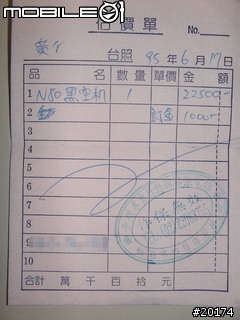 mobile01
估價單
No.
黃's
台照 95年6月17日
品名 數量 單價 金額
1 N80黑空机 1 22500-
2 訂金 1000-
3
4
5
6
7
8
9
10
合計 萬 千 百 拾 元
#20174